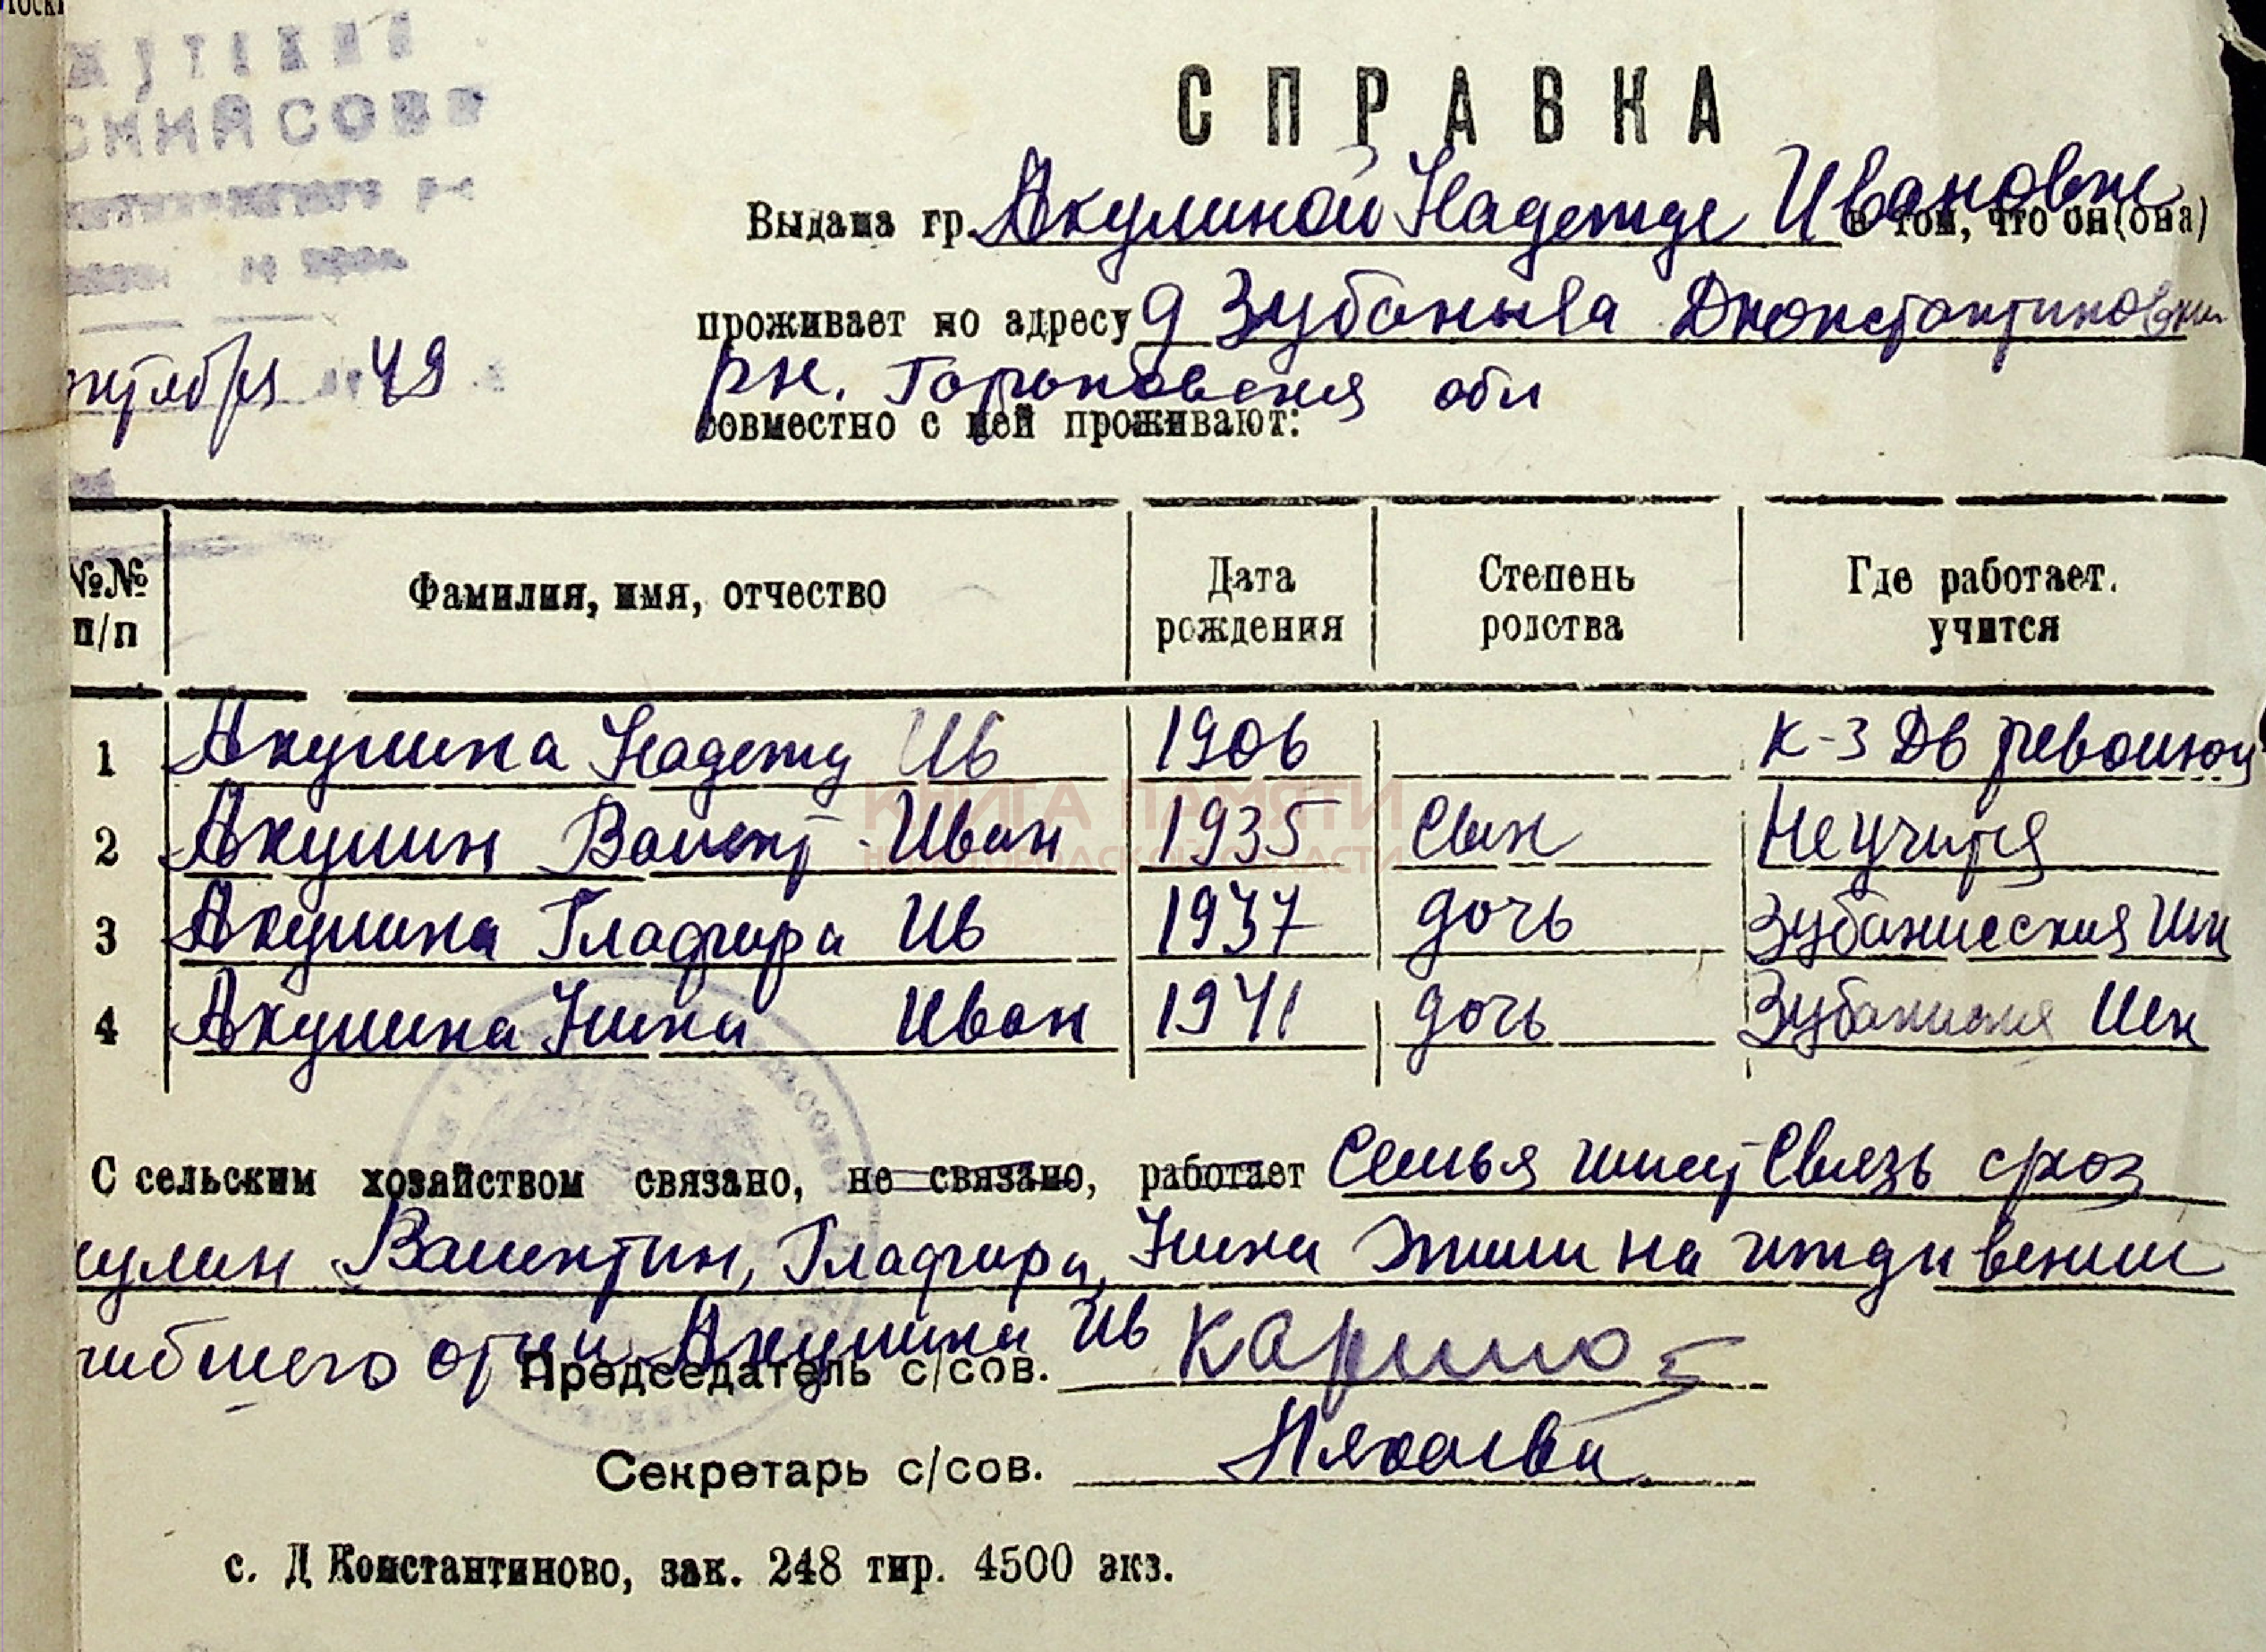 СПРАВКА
Выдана гр. Акулиной Надежде Ивановне в том, что он(она)
проживает по адресу д Зубаниха Дконстантиновски
рн. Горьковская обл
октября 49
совместно с ней проживают:
№№ п/п Фамилия, имя, отчество Дата рождения Степень родства Где работает. учится
1 Акулина Надежд Ив 1906 к-з Дв революц
2 Акулин Валент Иван 1935 Сын Не учится
3 Акулина Глафира Ив 1937 дочь Зубанихская Шк
4 Акулина Нина Иван 1941 дочь Шк
С сельским хозяйством связано, не связано, работает Семья имеет Связь
кулин Валентин, Глафира, Нина жили на иждивении
гибшего отца Акулина Ив
Председатель с/сов.
Секретарь с/сов.
с. Д Константиново, зак. 248 тир. 4500 экз.
КНИГА ПАМЯТИ
НИЖЕГОРОДСКОЙ ОБЛАСТИ